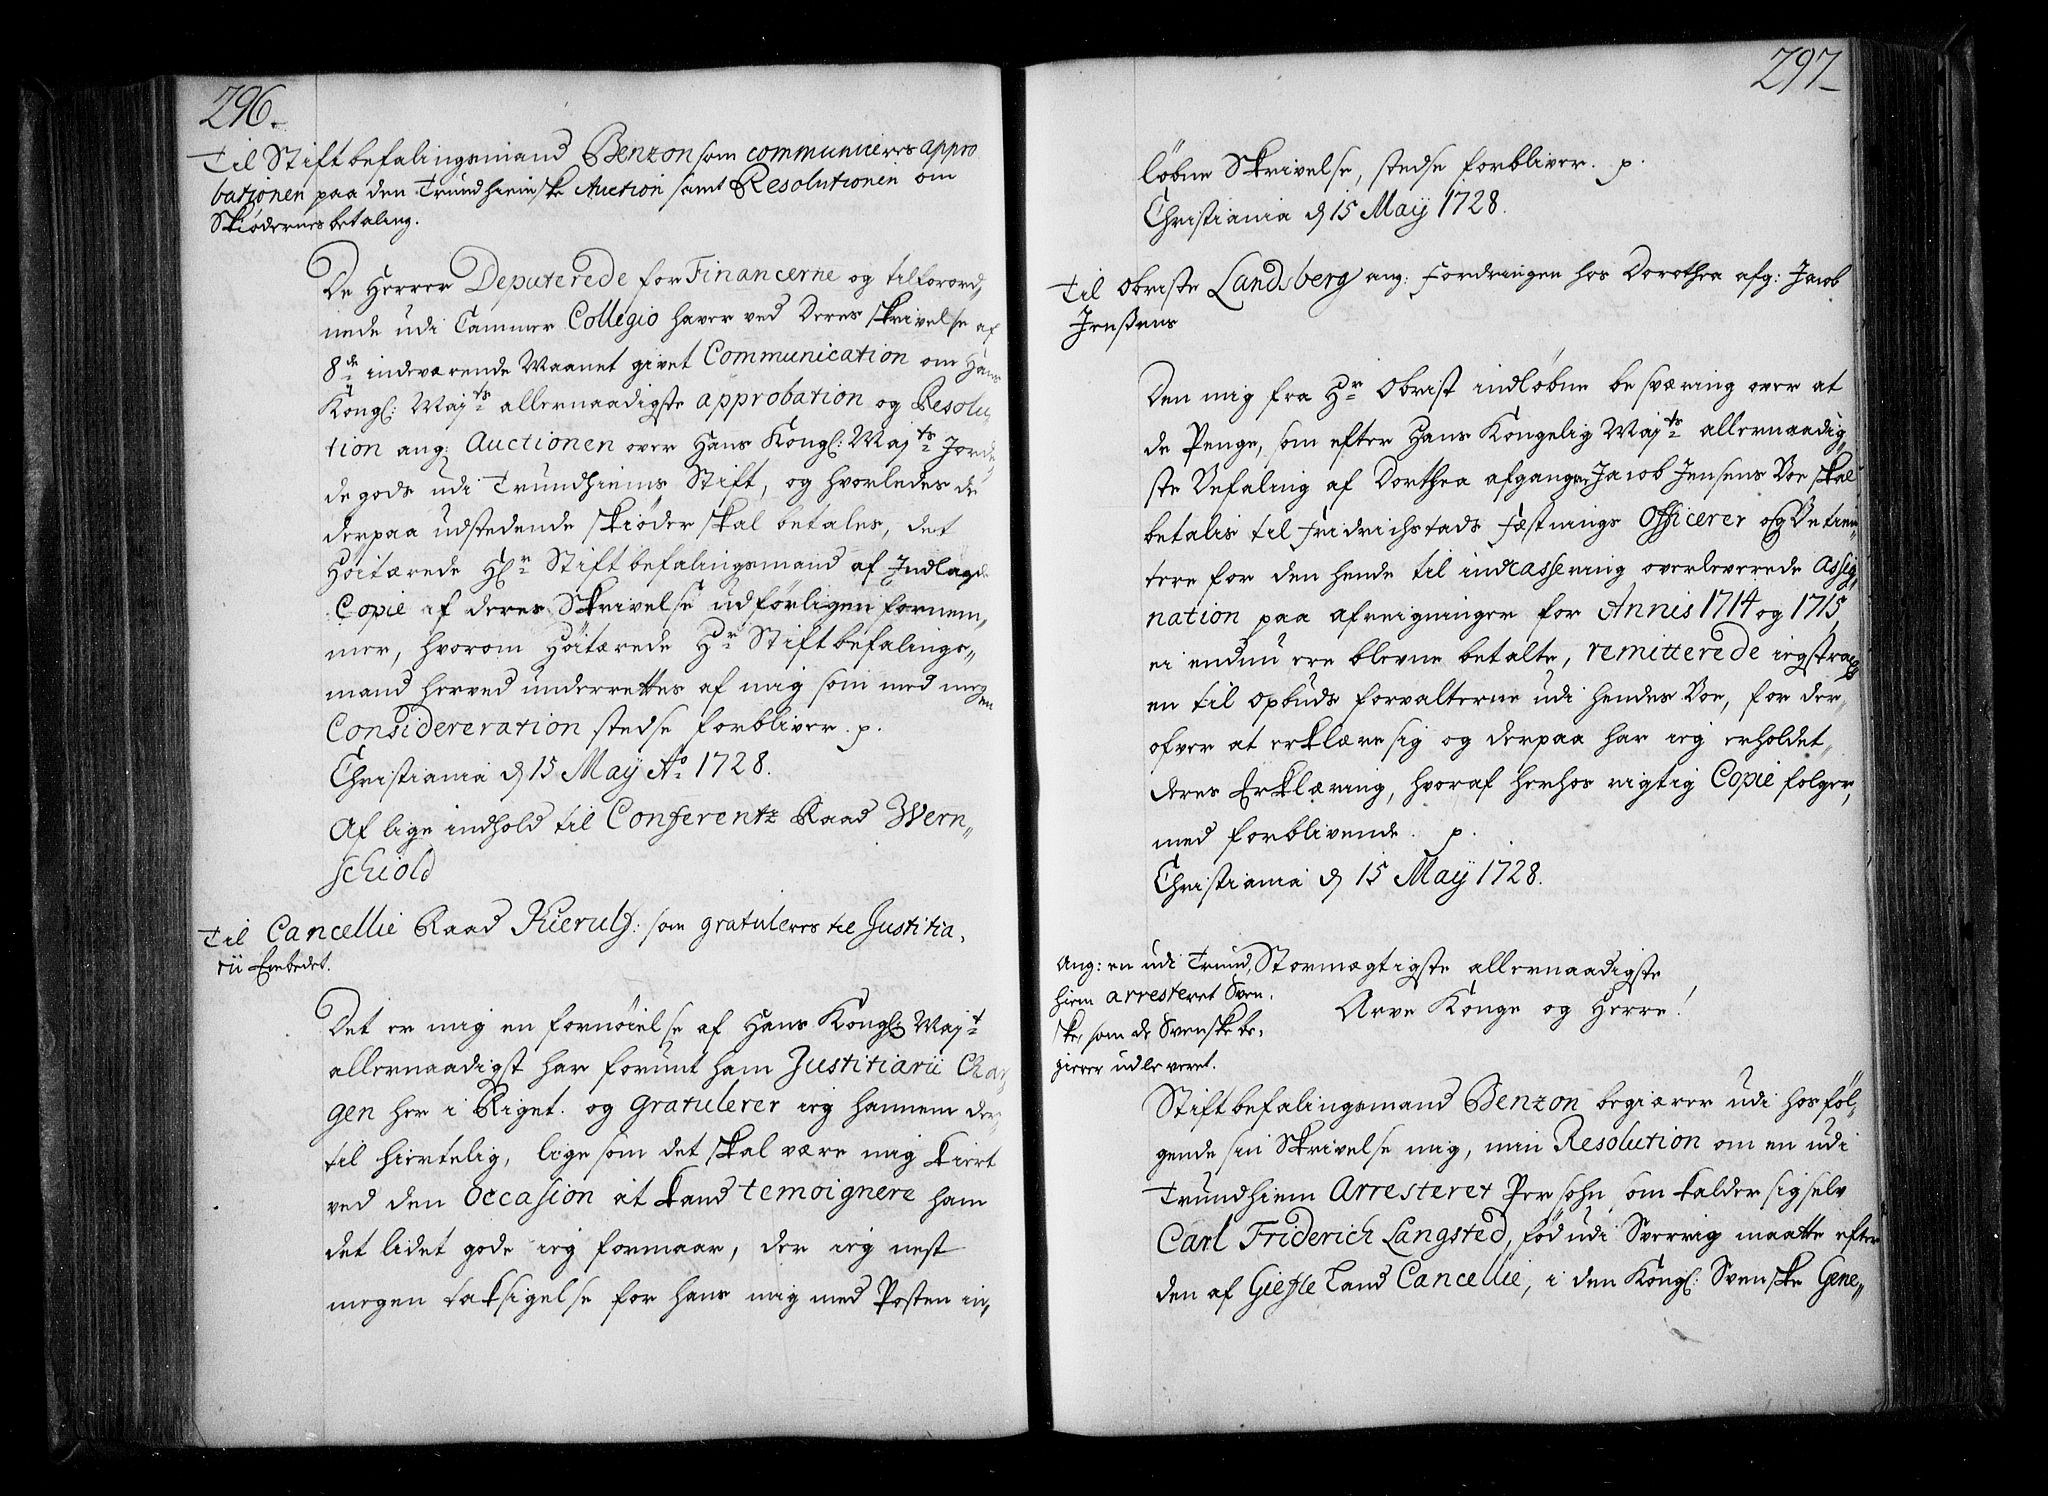 296.
Til Stiftbefalingsmand Benzon som communiceres appro
bationen paa den Trundhiemske Auction samt Resolutionen om
Skiødernes betaling.
De Herrer Deputerede for Financerne og tilforord„
nede udi Cammer Collegio haver ved Deres skrivelse af
8de indeværende Maanet givet Communication om Hans
Kongl: Majts allernaadigste approbation og Resolu„
tion ang: Auctionen over Hans Kongl: Majts Jorde„
degods udi Trundhiems Stift, og hvorledes de
derpaa udstedende skiøder skal betales, det
Høitærede Hr Stiftbefalingsmand af Indlagde
Copie af deres Skrivelse udførligen fornem„
mer, hvorom Høitærede Hr Stiftbefalings„
mand herved underrettes af mig som med megen
Considereration stedse forbliver. p.
Christiania d 15 Maÿ Ao 1728.
Af lige indhold til Conferentz Raad Wern„
schiold
Til Cancellie Raad Kierulf: som gratuleres til Justitia„
rii Embedet.
Det er mig en fornøielse af Hans Kongl: Majt
allernaadigst har forunt ham Justitiarii Char„
gen her i Riget. og gratulerer ieg hannem der„
til hiertelig, ligesom det skal være mig kiert
ved den occasion at kand temoignere ham
det lidet gode ieg formaar, der ieg nest
megen taksigelse for hans mig med Posten in„
297
løbne Skrivelse, stedse forbliver. p.
Christiania d 15 Maÿ 1728.
Til Obriste Landsberg ang: Fordringen hos Dorothea afg: Jacob
Jenßens
Den mig fra Hr Obrist indløbne besværing over at
de Penge, som efter Hans Kongelig Majts allernaadig„
ste Befaling af Dorthea afgangne Jacob Jensens Boe skal
betalis til Fridrichstads Fæstnings Officerer og Betien„
tere for den hende til incassering overleverede Assig„
nation paa afreigninger for Annis 1714 og 1715,
ei endnu ere blevne betalte, remitterede ieg strax
en til opbuds forvalterne udi hendes Boe, for der„
ofver at erklære sig og derpaa har ieg erholdet
deres Erklæring, hvoraf herhos rigtig Copie følger,
med forblivende. p.
Christiania d 15 Maÿ 1728.
Ang: en udi Trund„
hiem arresteret Sven„
ske, som de Svenske be„
gierer udleveret.
Stormægtigste allernaadigste
Arve Konge og Herre!
Stiftbefalingsmand Benzon begiærer udi hosføl„
gende sin Skrivelse mig, min Resolution om en udi
Trundhiem Arresteret Persohn, som kalder sig selv
Carl Friderich Langsted, fød udi Sverrig maatte efter
den af Giefle Land Cancellie, i den Kongl: Svenske Gene„